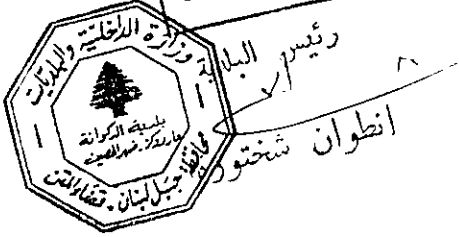 رئيس البلدية
انطوان شختورة
وزارة الداخلية والبلديات
بلدية الدكوانة
مار روكز. ضهر الحصين
محافظة جبل لبنان. قضاء المتن